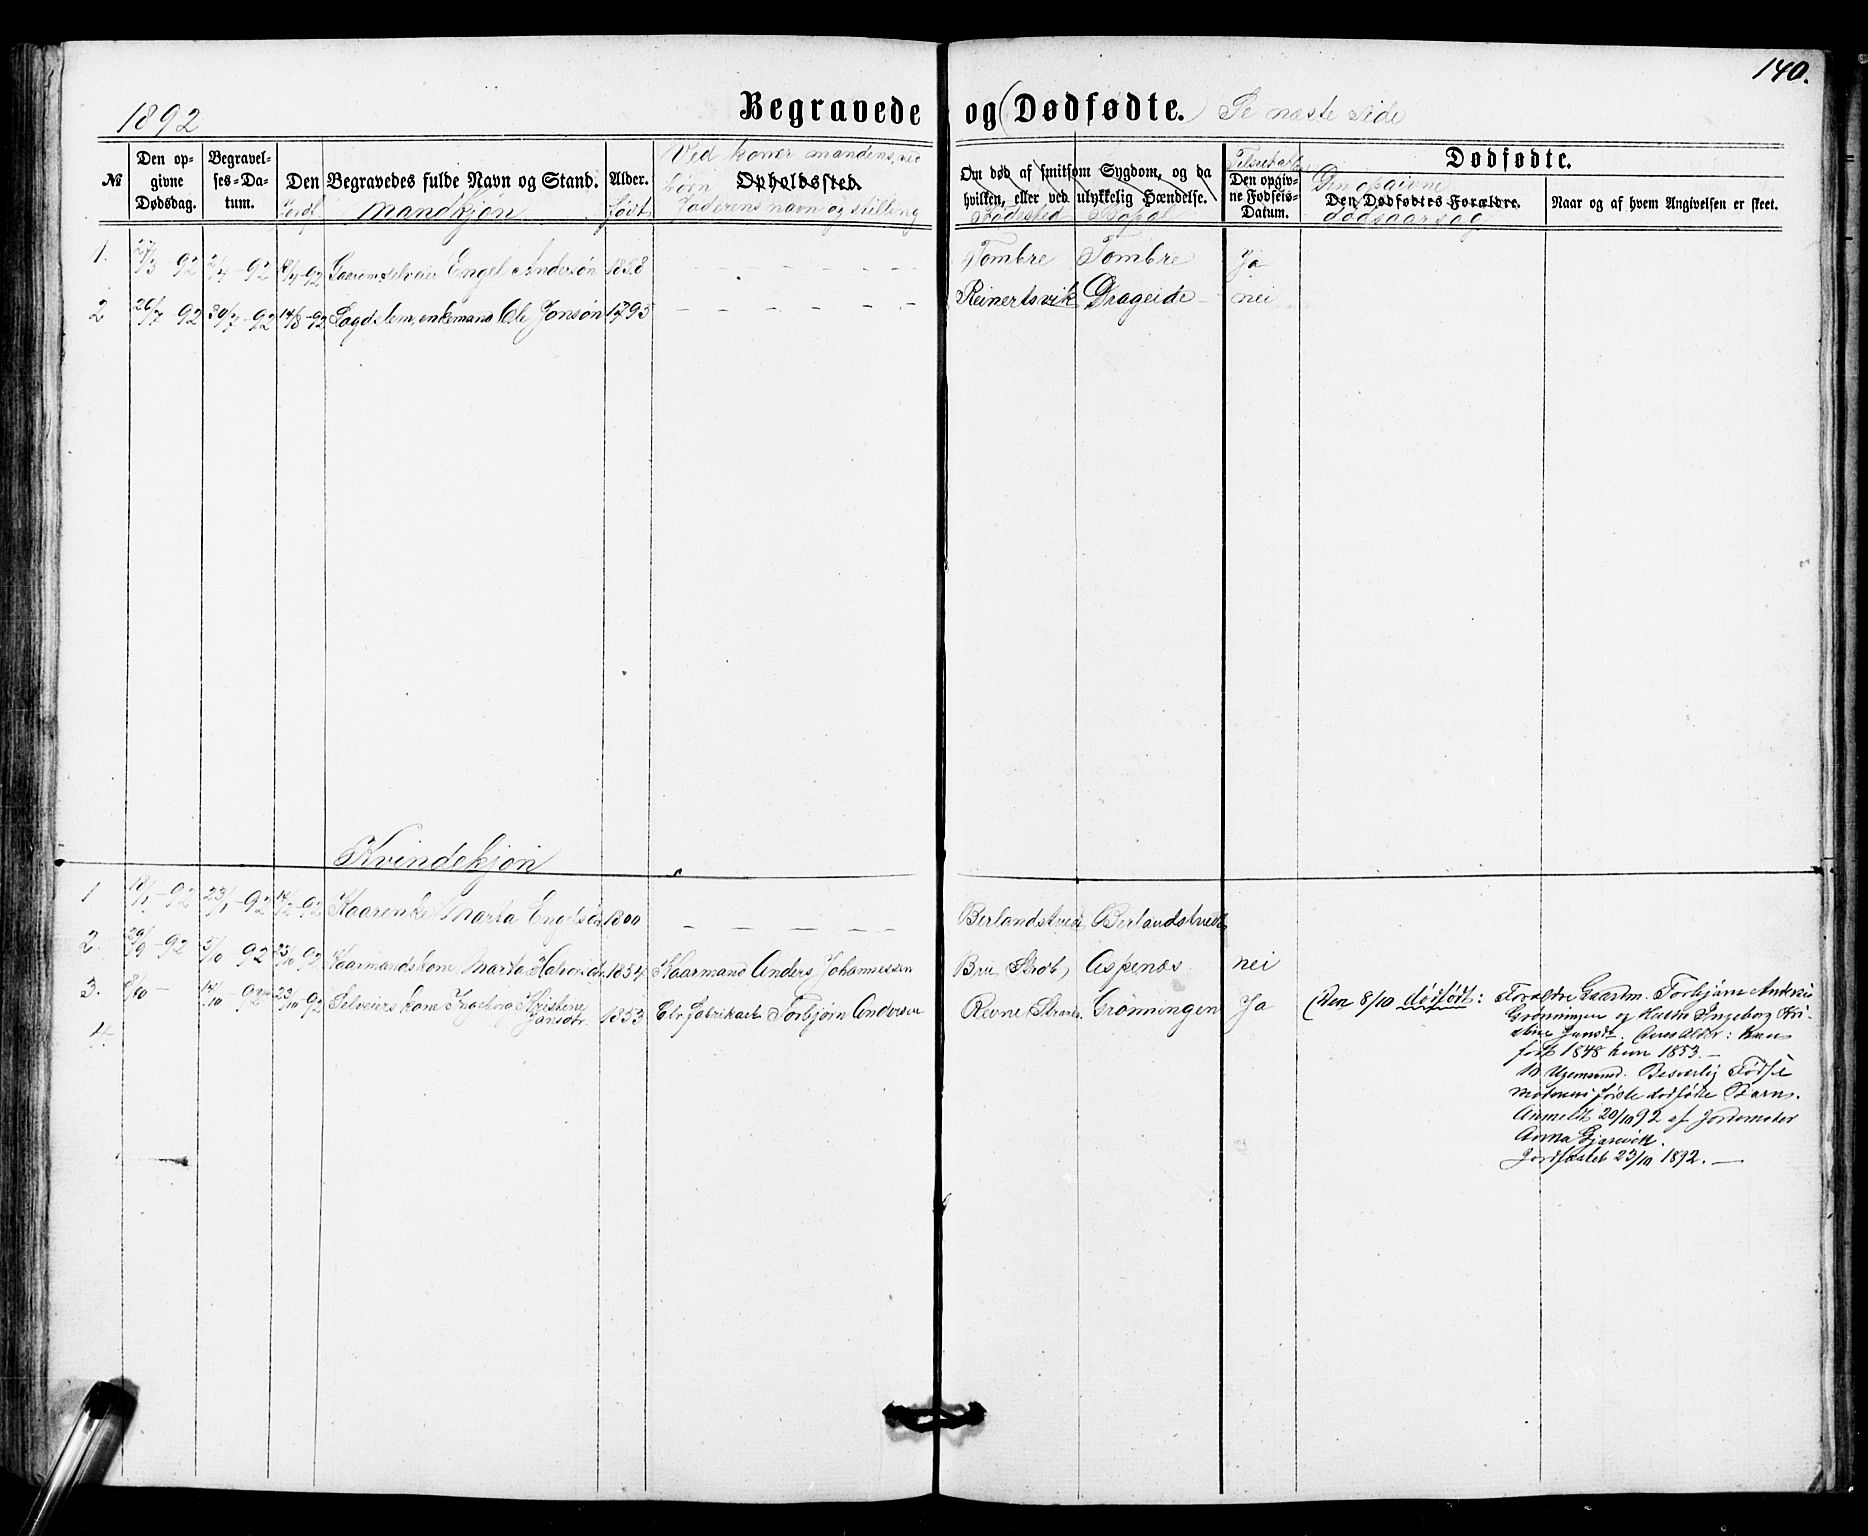 140.
1892 Begravede og (Dødfødte.) Se næste side
№ Den opgivne Dødsdag. Begravelses-Datum. Jordf. Den Begravedes fulde Navn og Stand. Mandkjøn Alder. født Ved koner mandens, ved børn Opholdssted. Faderens navn og stilling
Om død af smitsom Sygdom, og da hvilken, eller ved ulykkelig Hændelse. Fødested Bopæl Den opgivne Fødsels-Datum. Dødfødte. Den opgivne Den Dødfødtes Forældre. dødsaarsag Naar og af hvem Angivelsen er skeet.
1. 27/3 92 2/4 - 92 8/4 - 92 Gaardm, selveier Engel Andersøn 1858 - - - - - - Tombre Tombre Ja
2 26/7 92 30/7 - 92 14/8 - 92 Lægdslem, enkemand Ole Jonsøn 1793 - - - - - - Reinertsvik Drageide - nei
Kvindekjøn
1 18/1 - 92 23/1 - 92 14/2 - 92 Kaarenke Marta Engelsdr 1800 - - - - - Berlandstveit Berlandstveit
2. 29/9 - 92 5/10 - 92 23/10 92 Kaarmandskone Marta Halvorsdtr 1854 Kaarmand Anders Johannessen Bru, Strø, Aspenæs nei
3. 8/10 - 14/10 - 92 23/10 92 Selveiers kone Ingeborg Kristene Jansdtr. 1853 Elr. fabrikarb Torbjørn Andersen Revne Strand. Grønningen Ja (Den 8/10 dødfødt: Forældre Gaardm. Torbjørn Anders
4. Grønningen og Hustru Ingeborg Kri-
stine Jansdt. Deres Alder: han
født 1848 hun 1853. -
Ugemsund. Besværlig Fødsel
moderens første dødfødte Barn.
Anmeldt 20/10 92 af Jordemoder
Anna Gjærevoll.
Jordfæstet 23/10 1892. -